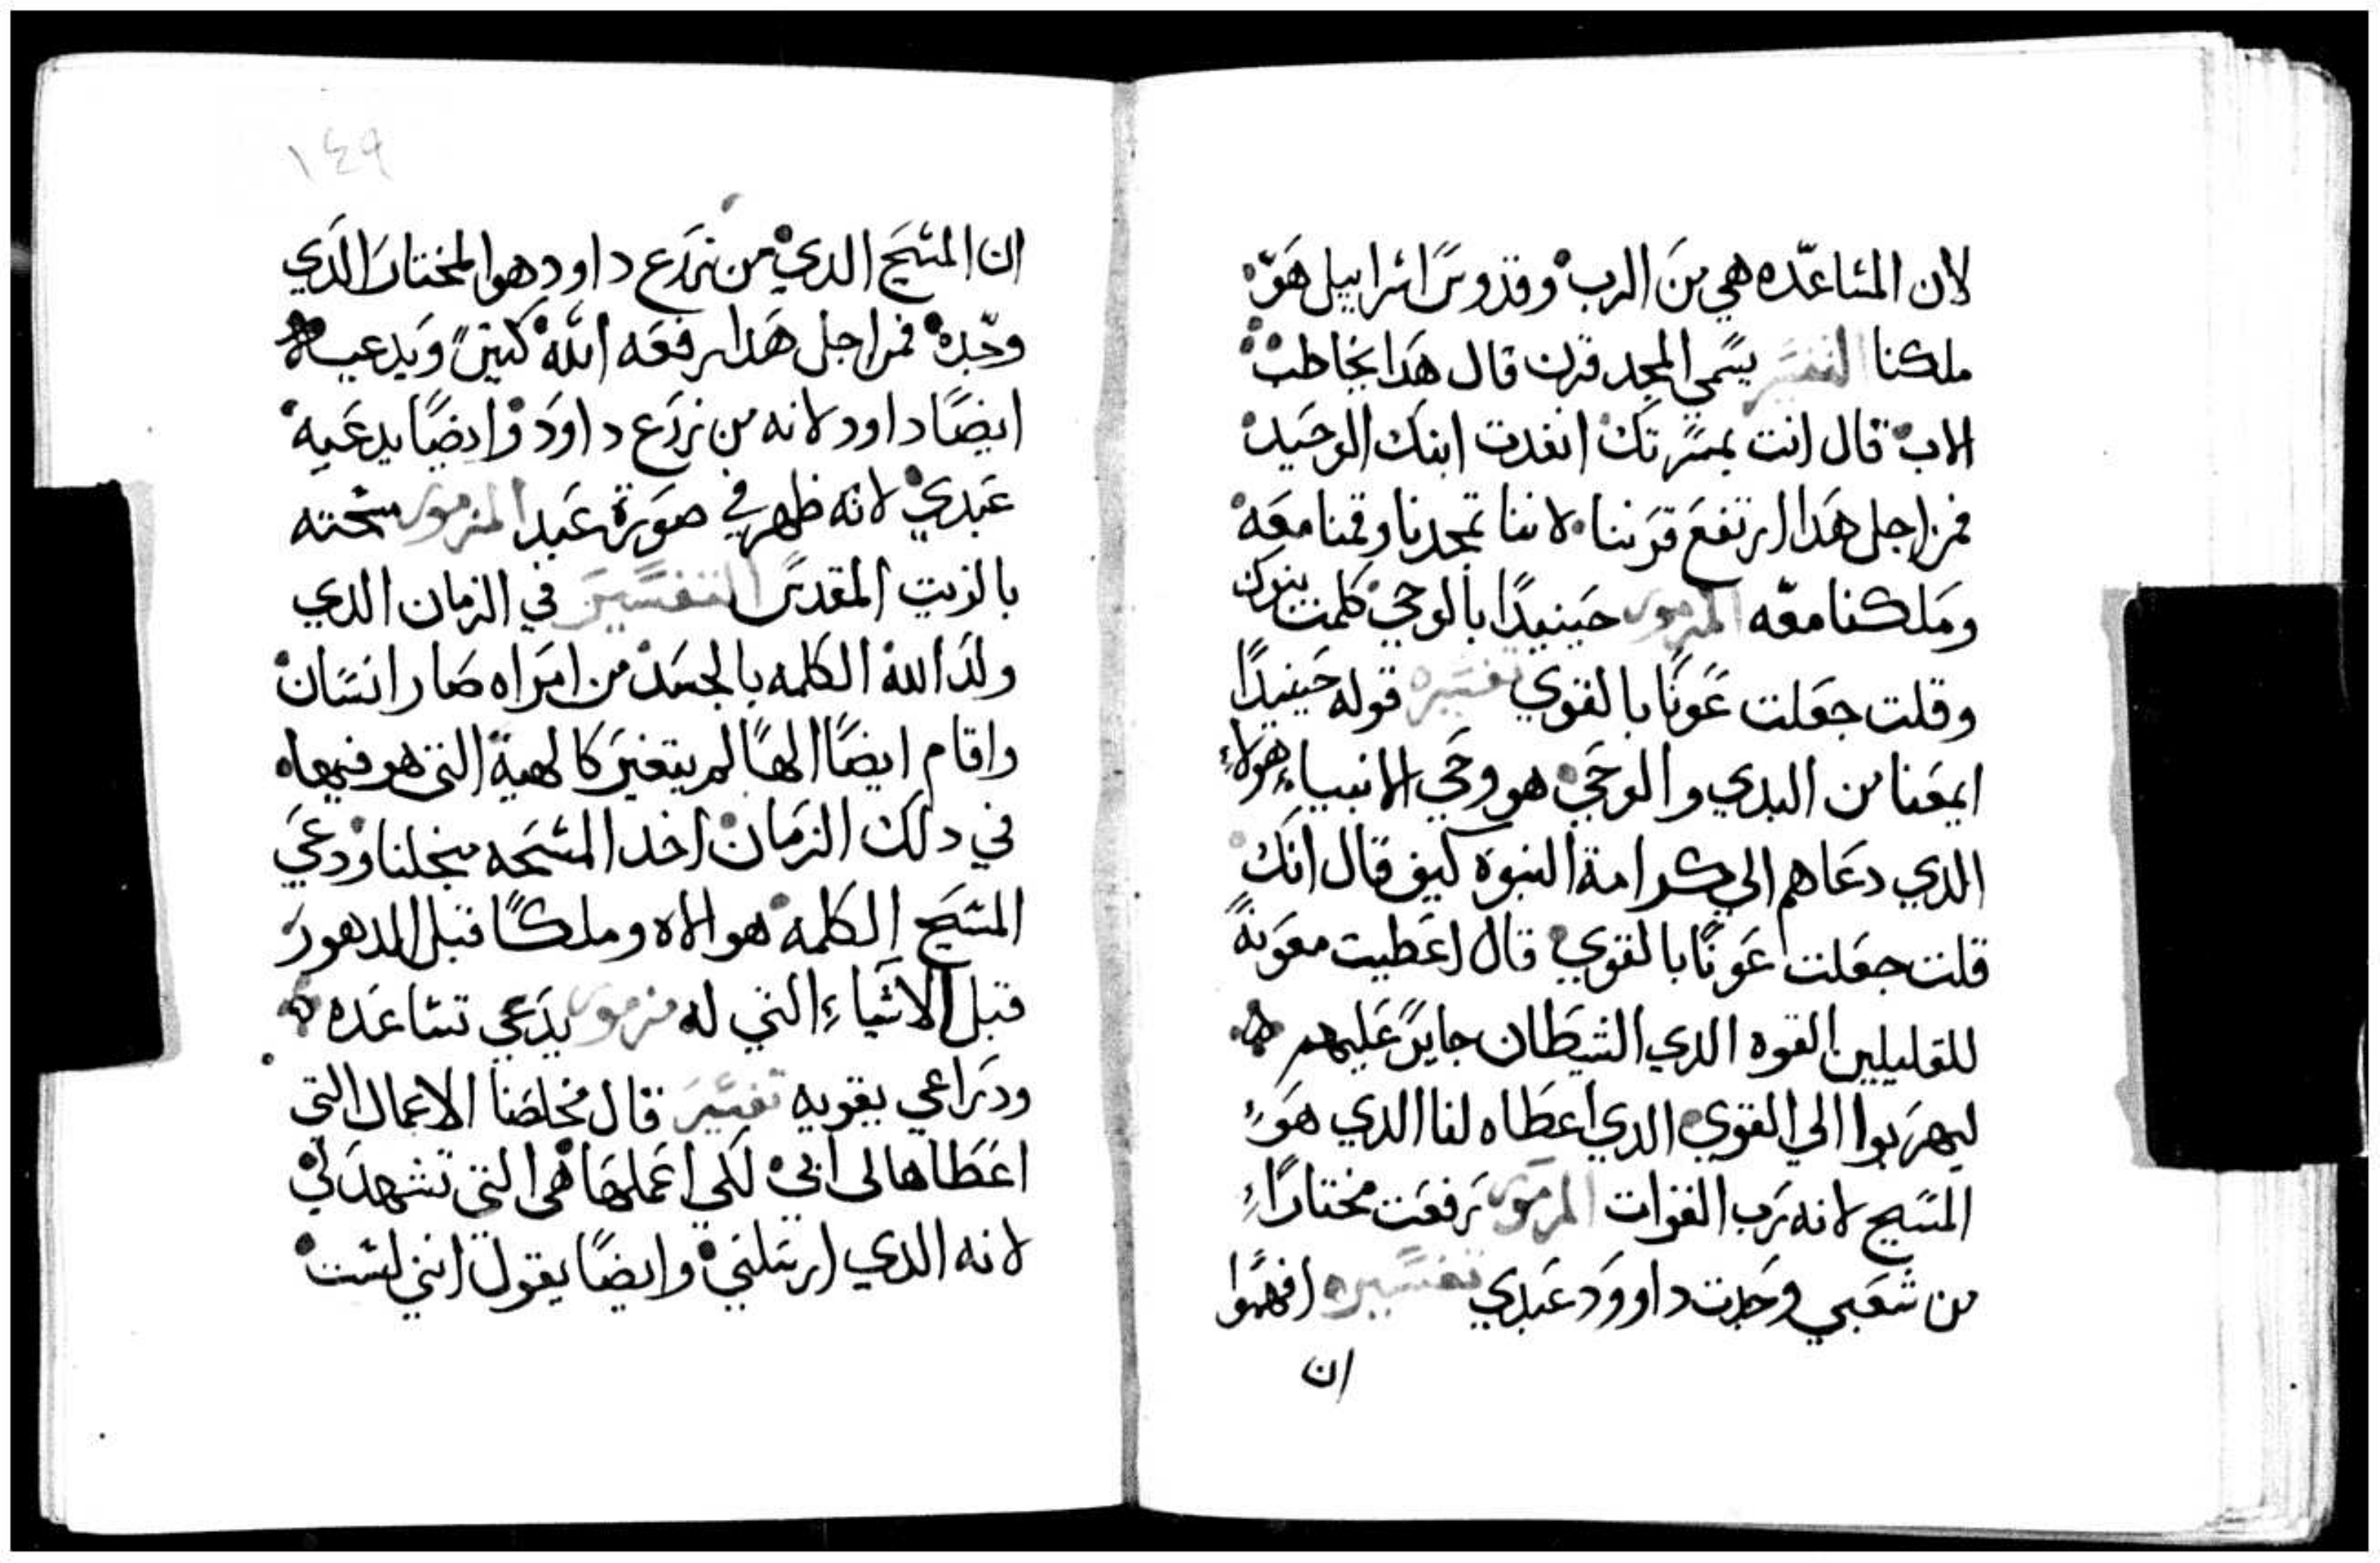 لان المساعده هي من الرب وقدوس اسراييل هو
ملكنا التفسير يسمي المجد قرن قال هدا يخاطب
الاب قال انت بمسرتك انفدت ابنك الوحيد
فمن اجل هدا ارتفع قرننا لاننا تمجدنا وقمنا معه
وملكنا معه المزمور حينيدًا بالوحي كلمت بنوك
وقلت جعلت عونًا بالقوي تفسيره قوله حينيدًا
ايمعنا من البدي والوحي هو وحي الانبياء هولاء
الدي دعاهم الي كرامة النبوه كيف قال انك
قلت جعلت عونًا بالقوي قال اعطيت معونة
للقليلين القوه الدي الشيطان جايرً عليهم
ليهربوا الي القوي الدي اعطاه لنا الدي هو
المسيح لانه رب القوات المزمور رفعت مختارًا
من شعبي وجدت داوود عبدي تفسيره افهموا
ان
١٤٩
ان المسيح الدي من زرع داود هو المختار الدي
وجده فمن اجل هدا رفعه الله كتير ويدعي
ايضًا داود لانه من زرع داود وايضًا يدعيه
عبدي لانه ظهر في صورة عبد المزمور مسحته
بالزيت المقدس التفسير في الزمان الدي
ولد الله الكلمه بالجسد من امراه صار انسان
واقام ايضًا الهًا لم يتغير كالهية التي هو فيها
في دلك الزمان اخد المسحه من اجلنا ودعي
المسيح الكلمه هو الاه وملكًا قبل الدهور
قبل الاشياء التي له مزمور يدعي تساعده
ودراعي يقويه تفسير قال مخلصنا الاعمال التي
اعطاها لي ابي لكي اعملها هي التي تشهد لي
لانه الدي ارسلني وايضًا يقول انني لست